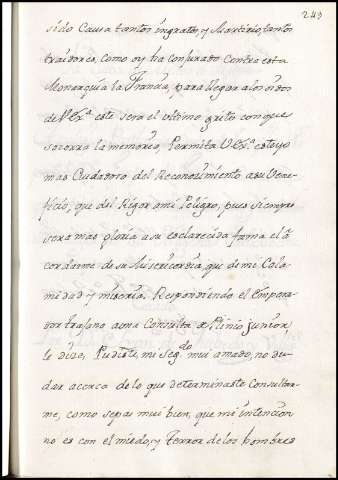 249
sido Causa tantos ingratos, y Martirio tantos
traidores, como oy ha conjurado Contra esta
Monarquia la Francia, para llegar a los oidos
de V. Ex.ª este sera el ultimo grito con que
socorra la memoria, Permita V. Ex.ª esto yo
mas Cuidadoso del Reconocimiento a su Vene-
ficio, que del Rigor a mi Peligro, pues siempre
sera mas gloria a su esclarecida fama el a
cordarme de su Misericordia, que de mi Cala
midad y miseria. Respondiendo el Empera-
dor trajano a una Consulta de Plinio junior,
le dice, Pudiste, mi Seg.do mui amado, no du-
dar acerca de lo que determinaste Consultar-
me, como sepas mui bien, que mi intencion
no es con el miedo, y Terror de los hombres